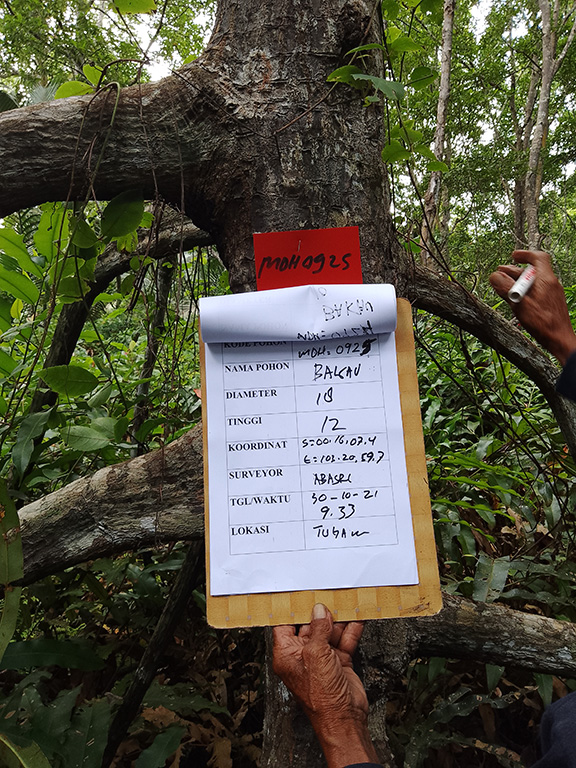 MDH0925
BAKAU
KODE POHON MDH=0925
NAMA POHON BAKAU
DIAMETER 18
TINGGI 12
KOORDINAT S=00.16.07.4
E=103.20.59.7
SURVEYOR ABASRI
TGL/WAKTU 30-10-21
9.33
LOKASI